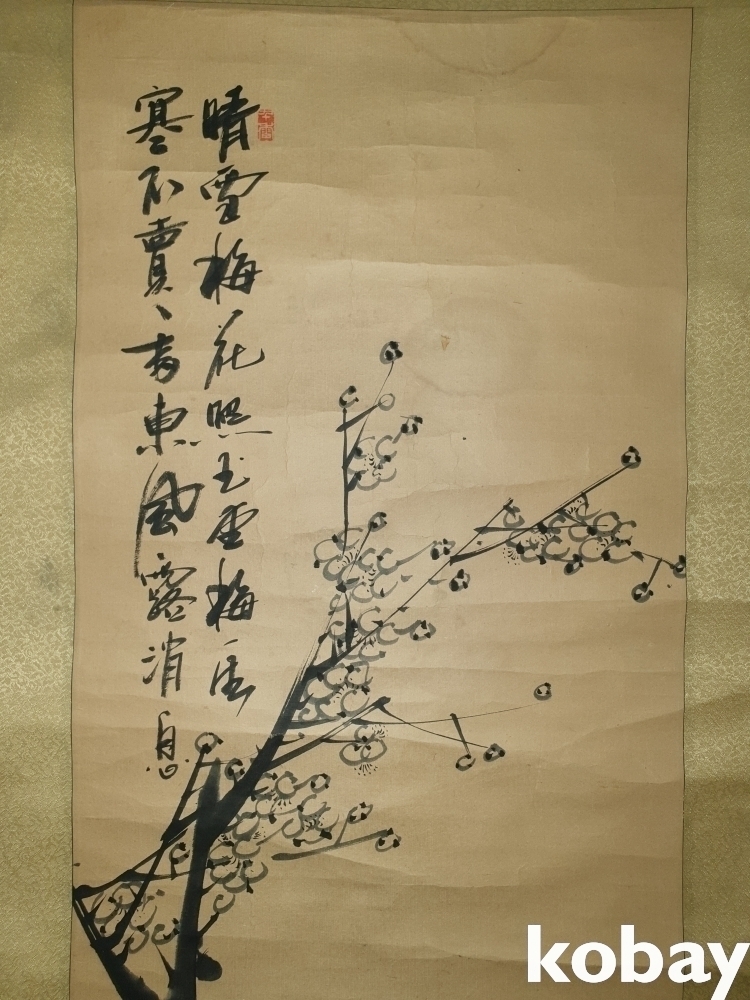 晴雪梅花照玉堂梅
寒不賣香東風露消息
kobay